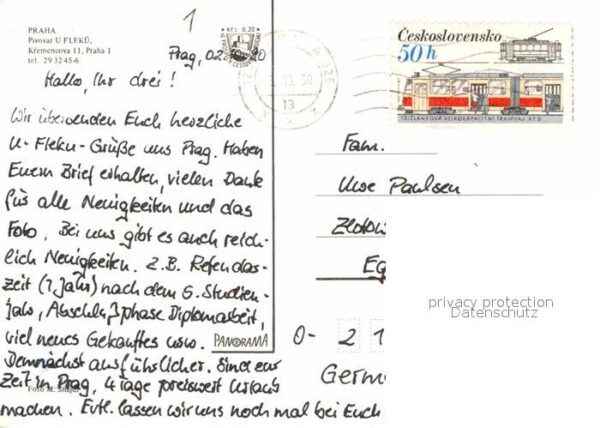 1
PRAHA
Pivovar U FLEKŮ,
Křemencova 11, Praha 1
tel. 29 32 45-6
Kčs. 0,20
Prag, 02
90
Hallo, Ihr drei!
Wir übersenden Euch herzliche
U-Fleku-Grüße aus Prag. Haben
Euern Brief erhalten, vielen Dank
für alle Neuigkeiten und das
Foto. Bei uns gibt es auch reich-
lich Neuigkeiten. Z.B. Referidas-
zeit (1 Jahr) nach dem 5. Studien-
jahr, Abschlußphase Diplomarbeit,
viel neues Gekauftes usw.
Demnächst ausführlicher. Sind zur
Zeit in Prag, 4 Tage preiswert Urlaub
Foto M.
machen. Evtl. lassen wir uns noch mal bei Euch
PANORAMA
90
13
Československo
50 h
TŘÍČLÁNKOVÁ VELKOKAPACITNÍ TRAMVAJ KT 8
Fam.
Uwe Paulsen
Zlotow
Eg
privacy protection
Datenschutz
0- 2 1
Germ